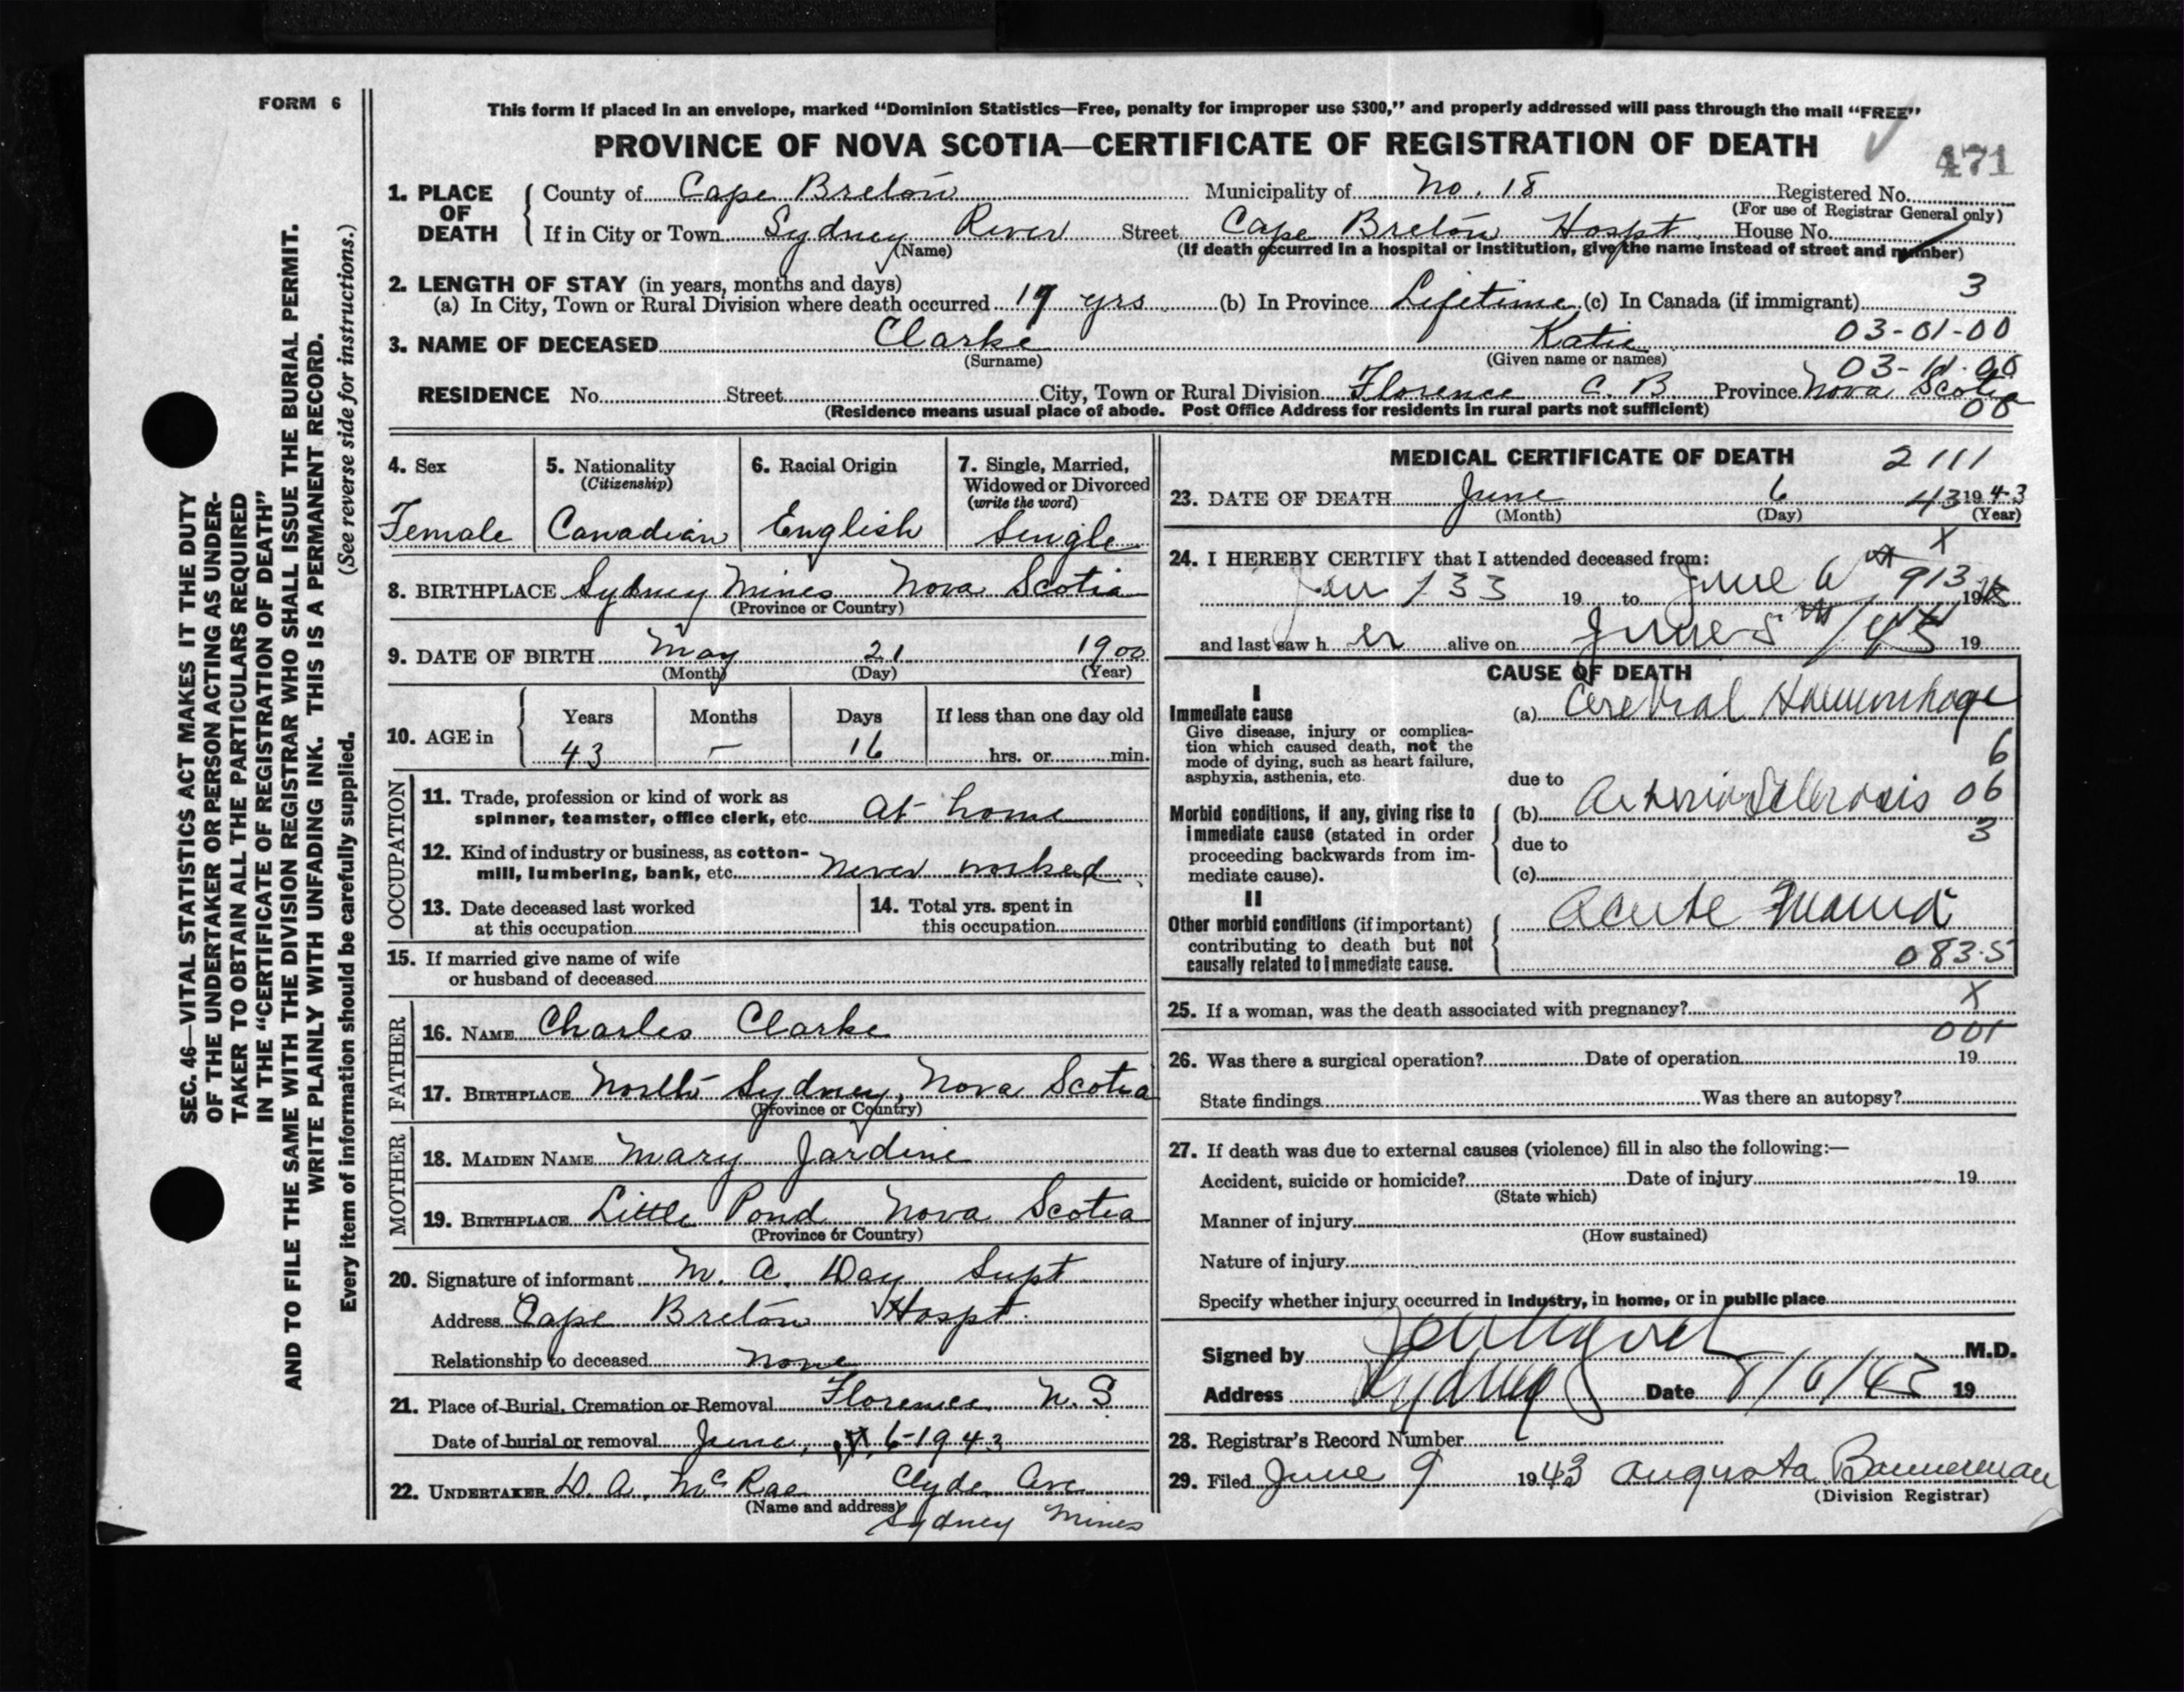 FORM 6
This form if placed in an envelope, marked “Dominion Statistics—Free, penalty for improper use $300,” and properly addressed will pass through the mail “FREE”
PROVINCE OF NOVA SCOTIA—CERTIFICATE OF REGISTRATION OF DEATH
471
1. PLACE OF DEATH
County of Cape Breton Municipality of No. 18 Registered No.
(For use of Registrar General only)
If in City or Town Sydney River Street Cape Breton Hospt. House No.
(Name) (If death occurred in a hospital or institution, give the name instead of street and number)
2. LENGTH OF STAY (in years, months and days) 3
(a) In City, Town or Rural Division where death occurred 17 yrs (b) In Province Lifetime (c) In Canada (if immigrant)
3. NAME OF DECEASED Clarke Katie 03-01-00
(Surname) (Given name or names) 03-11-00
RESIDENCE No. Street City, Town or Rural Division Florence C. B. Province Nova Scotia
(Residence means usual place of abode. Post Office Address for residents in rural parts not sufficient) 00
4. Sex Female
5. Nationality (Citizenship) Canadian
6. Racial Origin English
7. Single, Married, Widowed or Divorced (write the word) Single
8. BIRTHPLACE Sydney Mines Nova Scotia
(Province or Country)
9. DATE OF BIRTH May 21 1900
(Month) (Day) (Year)
10. AGE in
Years Months Days If less than one day old
43 — 16 hrs. or min.
OCCUPATION
11. Trade, profession or kind of work as
spinner, teamster, office clerk, etc. At home
12. Kind of industry or business, as cotton-
mill, lumbering, bank, etc. Never worked
13. Date deceased last worked
at this occupation
14. Total yrs. spent in
this occupation
15. If married give name of wife
or husband of deceased
FATHER
16. NAME Charles Clarke
17. BIRTHPLACE North Sydney, Nova Scotia
(Province or Country)
MOTHER
18. MAIDEN NAME Mary Jardine
19. BIRTHPLACE Little Pond Nova Scotia
(Province or Country)
20. Signature of informant M. A. Day Supt
Address Cape Breton Hospt.
Relationship to deceased none
21. Place of Burial, Cremation or Removal Florence N. S
Date of burial or removal June, 6-1943
22. UNDERTAKER D. A. McRae Clyde Ave
(Name and address)
Sydney Mines
MEDICAL CERTIFICATE OF DEATH 2111
23. DATE OF DEATH June 6 43 1943
(Month) (Day) (Year)
X
24. I HEREBY CERTIFY that I attended deceased from:
Jan 1 33 19 to June 6th 19
and last saw her alive on June 5th 19
CAUSE OF DEATH
I
Immediate cause (a) Cerebral Haemorrhage
Give disease, injury or complica-
tion which caused death, not the
mode of dying, such as heart failure,
asphyxia, asthenia, etc. 6
due to
Morbid conditions, if any, giving rise to (b) Arteriosclerosis 06
immediate cause (stated in order 3
proceeding backwards from im- due to
mediate cause). (c)
II
Other morbid conditions (if important) Acute Mania
contributing to death but not
causally related to immediate cause. 083·5
X
25. If a woman, was the death associated with pregnancy?
001
26. Was there a surgical operation? Date of operation 19
State findings Was there an autopsy?
27. If death was due to external causes (violence) fill in also the following:—
Accident, suicide or homicide? Date of injury 19
(State which)
Manner of injury
(How sustained)
Nature of injury
Specify whether injury occurred in Industry, in home, or in public place
Signed by M.D.
Address Sydney Date 8/6/43 19
28. Registrar's Record Number
29. Filed June 9 1943 Augusta Bannerman
(Division Registrar)
SEC. 46—VITAL STATISTICS ACT MAKES IT THE DUTY
OF THE UNDERTAKER OR PERSON ACTING AS UNDER-
TAKER TO OBTAIN ALL THE PARTICULARS REQUIRED
IN THE “CERTIFICATE OF REGISTRATION OF DEATH”
AND TO FILE THE SAME WITH THE DIVISION REGISTRAR WHO SHALL ISSUE THE BURIAL PERMIT.
WRITE PLAINLY WITH UNFADING INK. THIS IS A PERMANENT RECORD.
Every item of information should be carefully supplied. (See reverse side for instructions.)